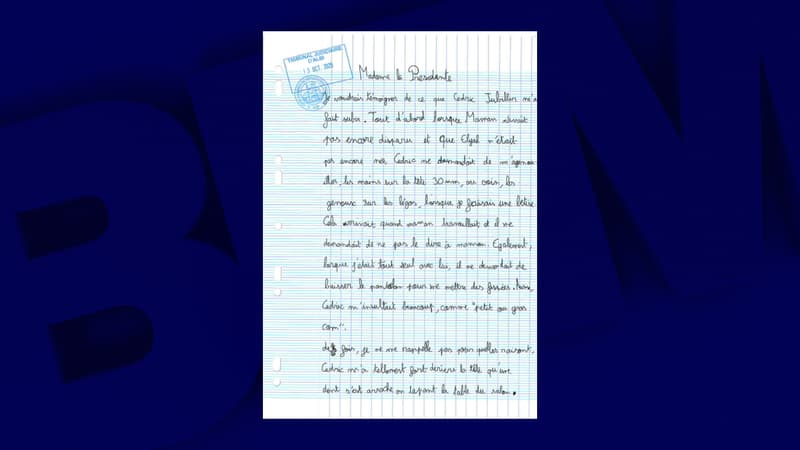 TRIBUNAL JUDICIAIRE
D'ALBI
13 OCT. 2025
Madame la Présidente
Je voudrais témoigner de ce que Cedric Jubillar m'a
fait subir. Tout d'abord lorsque Maman n'avait
pas encore disparu et que Elyah n'était
pas encore née, Cedric me demandait de m'agenou
iller, les mains sur la tête 30 mm, au coin, les
genoux sur les légos, lorsque je faisais une bêtise.
Cela arrivait quand maman travaillait et il me
demandait de ne pas le dire à maman. Egalement,
lorsque j'était tout seul avec lui, il me demandait de
baisser le pantalon pour me mettre des fessées.
Cedric m'insultait beaucoup, comme "petit ou gros
con".
fois, je ne me rappelle pas pour quelles raisons,
Cedric m'a tellement fort derière la tête qu'une
dent s'est arraché en tapant la table du salon.
BFM